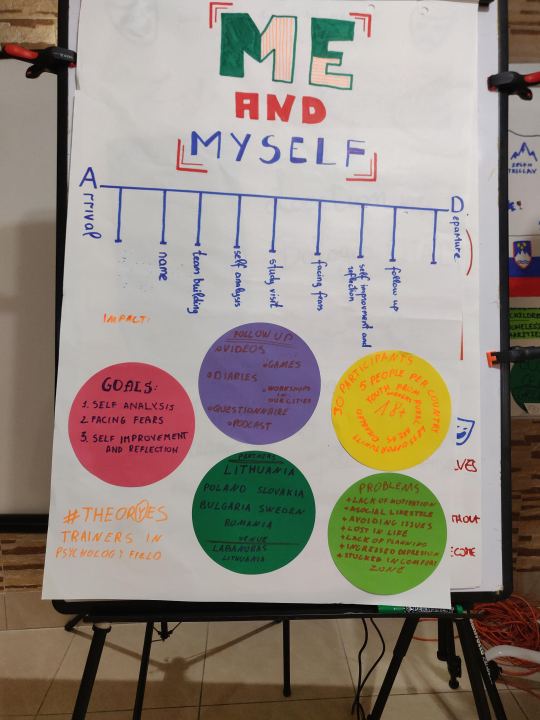 ME
AND
MYSELF
Arrival
name
team building
self analysis
study visit
facing fears
self improvment and
reflection
follow up
Departure
IMPACT:
GOALS:
1. SELF ANALYSIS
2. FACING FEARS
3. SELF IMPROVEMENT
AND REFLECTION
FOLLOW UP
VIDEOS
GAMES
DIARIES
WORKSHOPS
IN
OUR CITIES
QUESTIONNAIRE
PODCAST
30 PARTICIPANTS
5 PEOPLE PER COUNTRY
YOUTH FROM
RURAL AREAS
18+
PARTNERS
LITHUANIA
POLAND SLOVAKIA
BULGARIA SWEDEN
ROMANIA
VENUE
LABANORAS
LITHUANIA
PROBLEMS
LACK OF MOTIVATION
ASOCIAL LIFESTYLE
AVOIDING ISSUES
LOST IN LIFE
LACK OF PLANNING
INGREASED DEPRESION
STUCKED IN COMFORT
ZONE
#THEORYES
TRAINERS IN
PSYCHOLOGY FIELD
TRIGLAV
CHILDREN